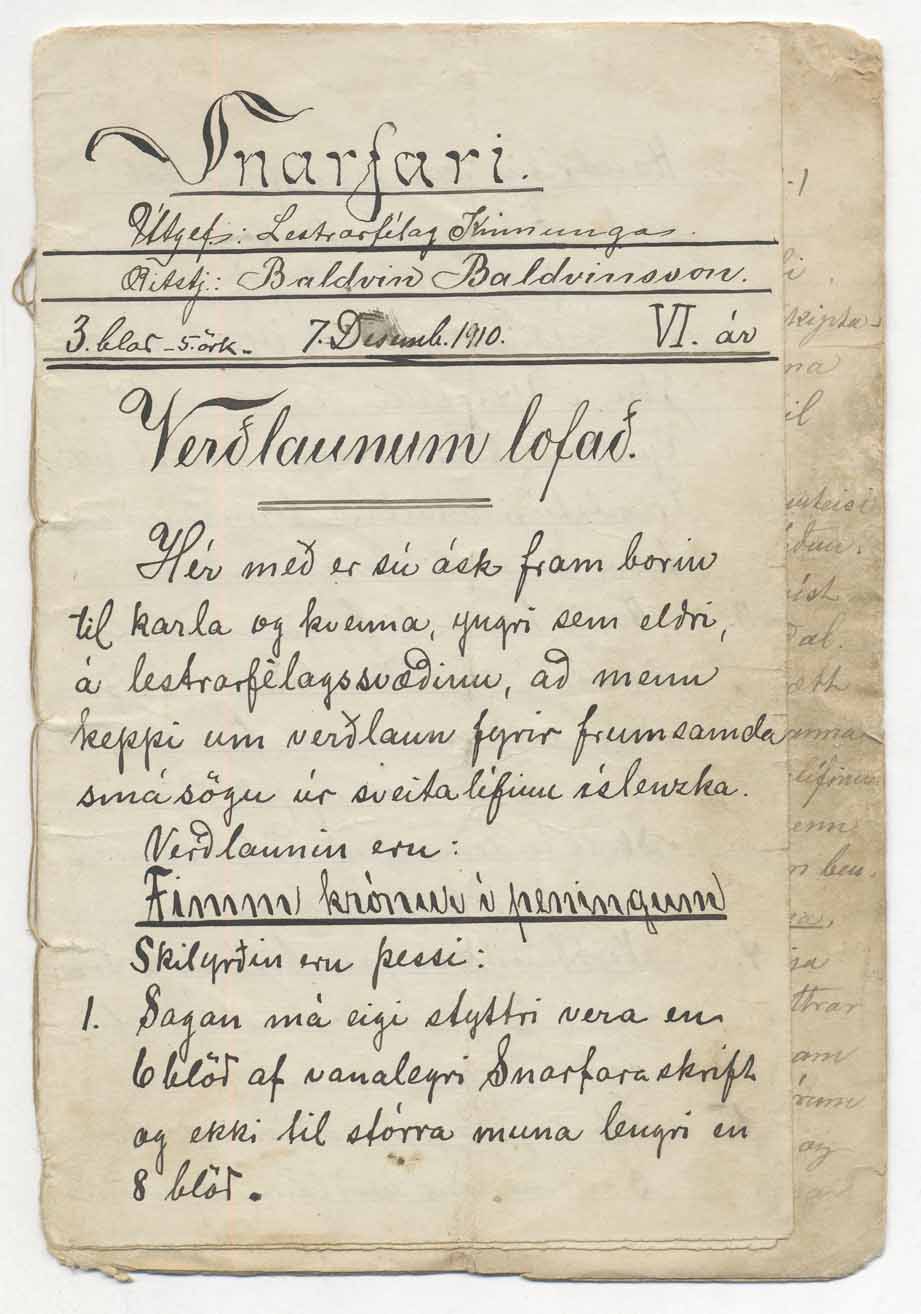 Snarfari.
Útgef: Lestrarfélag Kinnunga.
Ritstj.: Baldvin Baldvinsson.
3. blað - 5. örk. 7. Desemb. 1910. VI. ár
Verðlaunum lofað.
Hér með er sú ásk fram borin
til karla og kvenna, yngri sem eldri,
á lestrarfélagssvæðinu, að menn
keppi um verðlaun fyrir frumsamda
smásögu úr sveitalífinu íslenzka.
Verðlaunin eru:
Fimm krónur í peningum
Skilyrðin eru þessi:
1. Sagan má eigi styttri vera en
6 blöð af vanalegri Snarfaraskrift
og ekki til stórra muna lengri en
8 blöð.